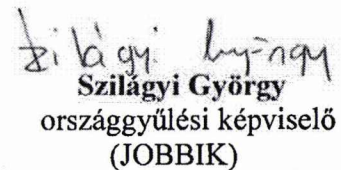 Szilágyi György
Szilágyi György
országgyűlési képviselő
(JOBBIK)